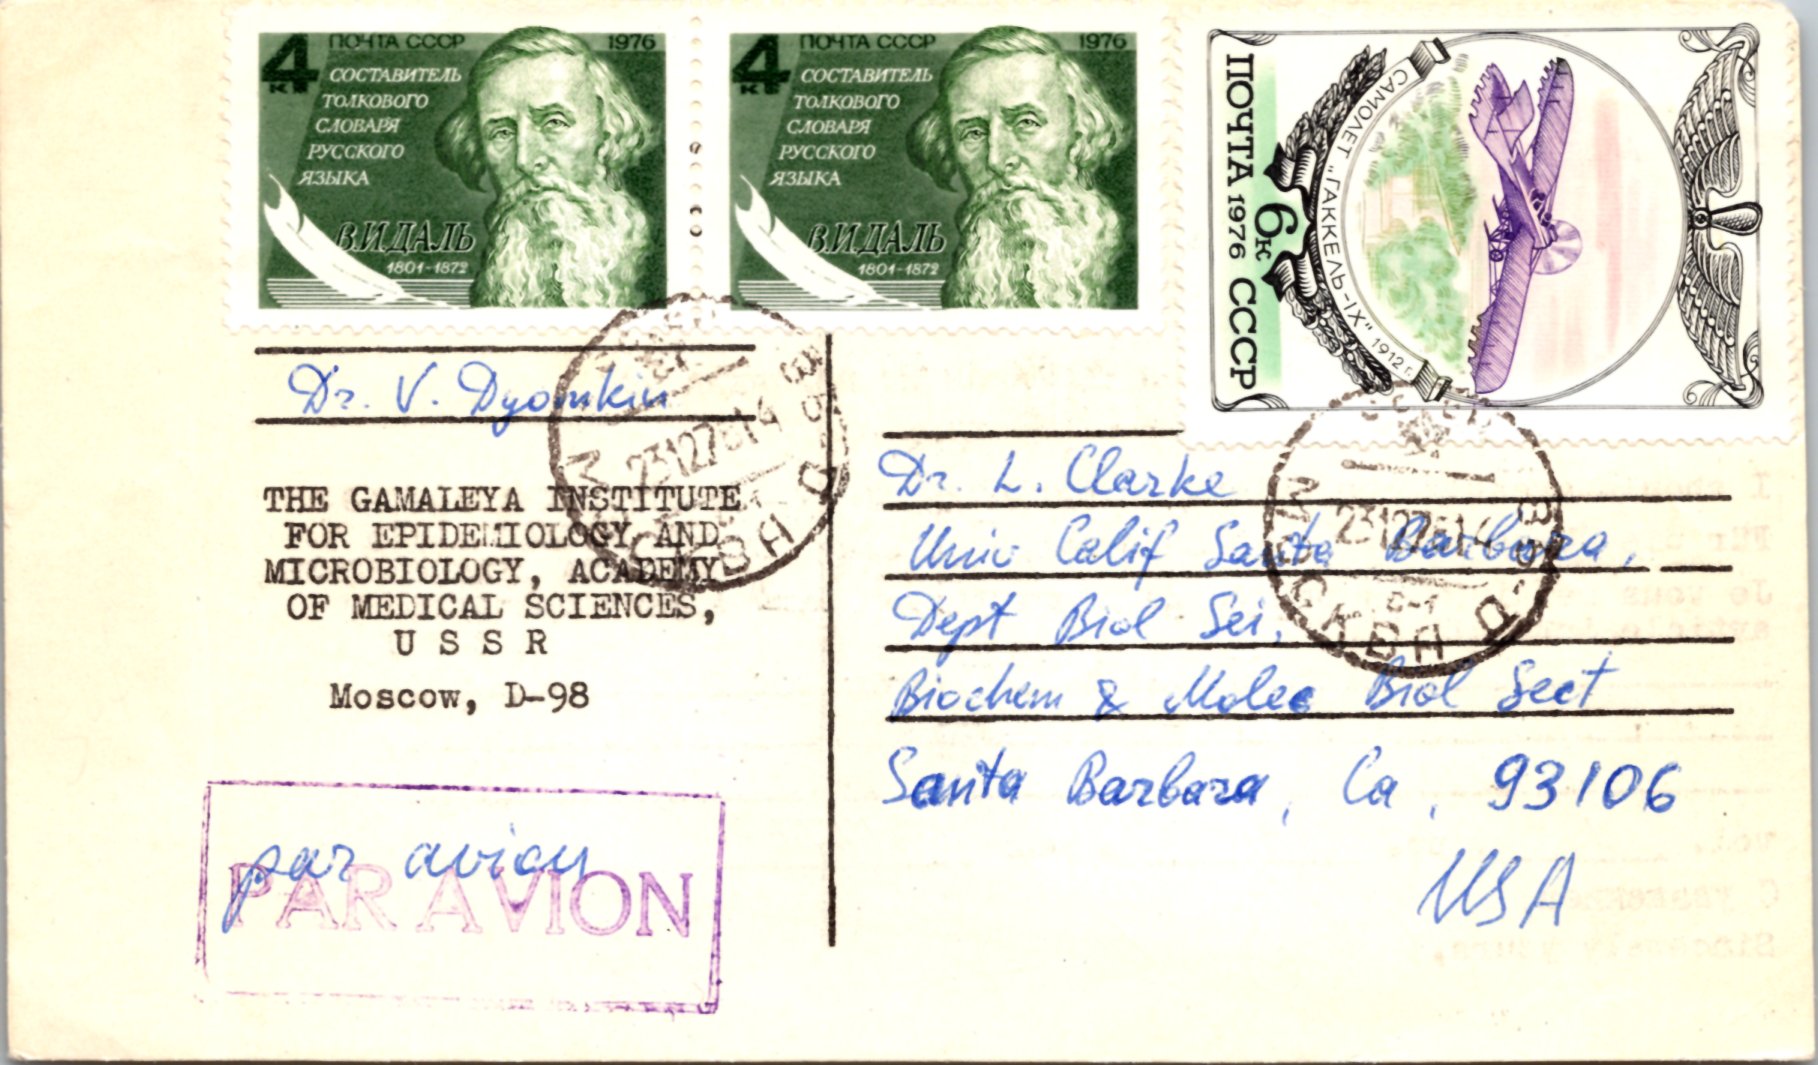 4 к ПОЧТА СССР 1976
СОСТАВИТЕЛЬ
ТОЛКОВОГО
СЛОВАРЯ
РУССКОГО
ЯЗЫКА
В.И.ДАЛЬ
1801-1872
4 к ПОЧТА СССР 1976
СОСТАВИТЕЛЬ
ТОЛКОВОГО
СЛОВАРЯ
РУССКОГО
ЯЗЫКА
В.И.ДАЛЬ
1801-1872
ПОЧТА 1976 СССР
6к
САМОЛЕТ „ГАККЕЛЬ-IX" 1912 г.
Dr. V. Dyomkin
МОСКВА Д-98
THE GAMALEYA INSTITUTE
FOR EPIDEMIOLOGY AND
MICROBIOLOGY, ACADEMY
OF MEDICAL SCIENCES,
U S S R
Moscow, D-98
par avion
PAR AVION
МОСКВА Д-98
Dr. L. Clarke
Univ Calif Santa Barbara,
Dept Biol Sci,
Biochem & Molec Biol Sect
Santa Barbara, Ca, 93106
USA